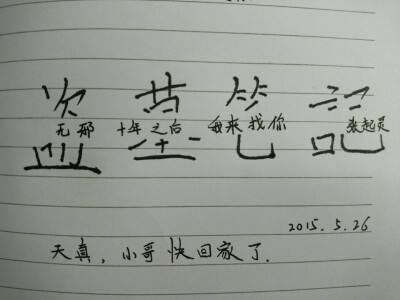 盗墓笔记
无邪 十年之后 我来找你 张起灵
2015.5.26
天真，小哥快回家了.